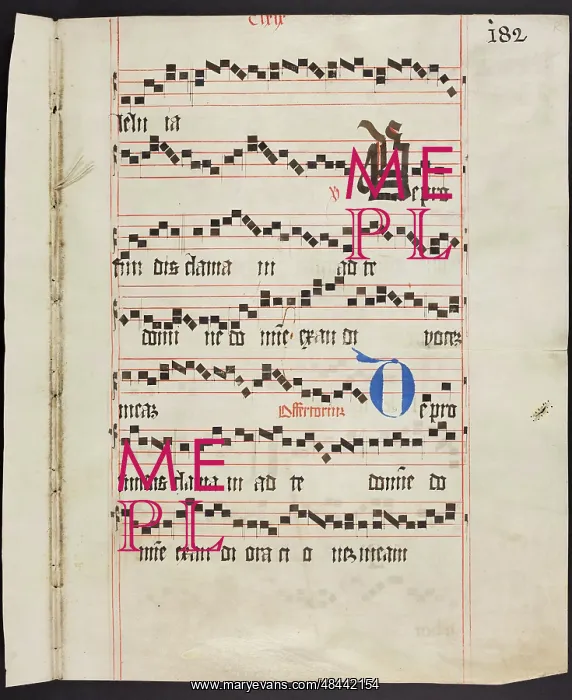 182
lelu ia
V D e pro
fun dis clama ui ad te
domi ne do mie exau di vocez
meaz Offertoriuz D e pro
fundis clama ui ad te domie do
mie exau di ora ci o nez meam
ME
PL
ME
PL
www.maryevans.com/48442154